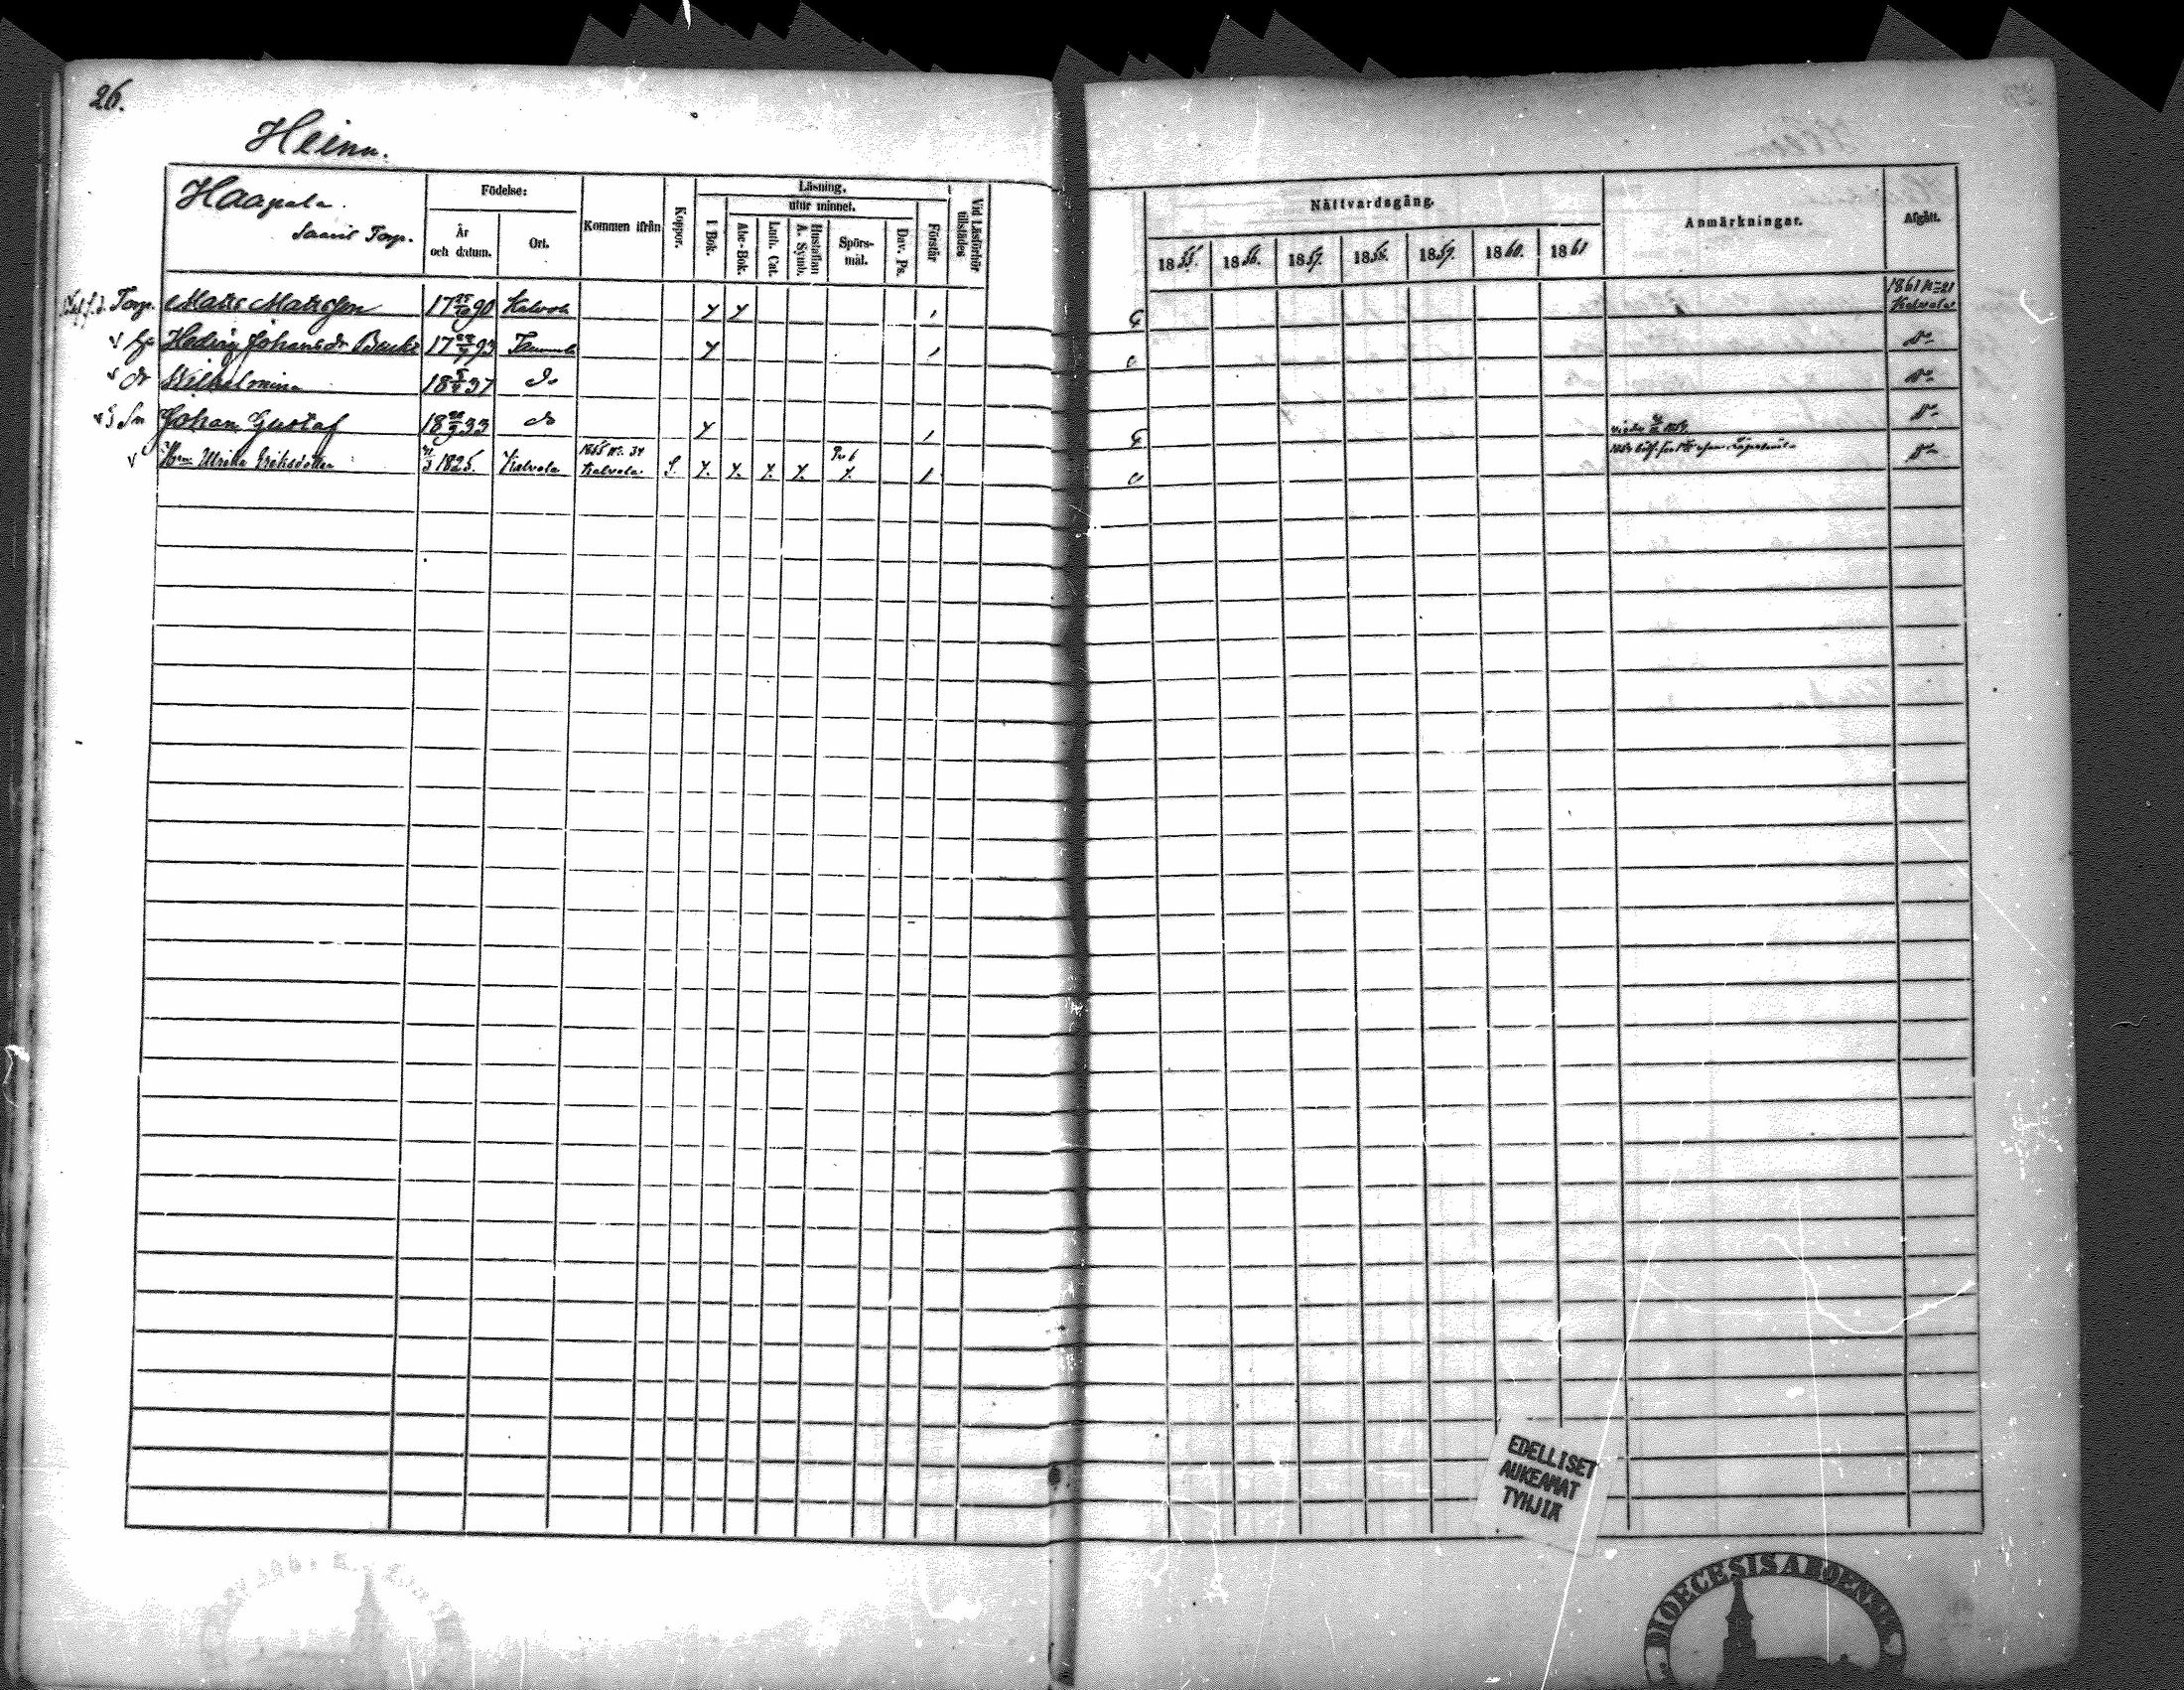 26.
Heinu.
Haapala.
Saaris Torp.
Födelse:
År och datum.
Ort.
Kommen ifrån
Koppor.
Läsning.
I Bok.
utur minnet.
Abc-Bok.
Luth. Cat.
Hustaflan A. Symb.
Spörsmål.
Dav. Ps.
Förstår
Vid Läsförhör tillstädes
Nattvardsgång.
1855. 1856. 1857. 1858. 1859. 1860. 1861
Anmärkningar.
Afgått.
f.d. Torp. Matts Mattsson 17 90 Kalvola y y G 1861 N=21 Kalvola
v Hu Hedvig Johansdr 17 93 Tammela y do
v dr Wilhelmina 18 37 do do
v Sn Johan Gustaf 18 33 do y G do
v Hu Ulrika Eriksdotter 1825. Kalvola 1855 No. 34 Kalvola do
EDELLISET
AUKEAMAT
TYHJIÄ
DIOECESIS ABOENSIS